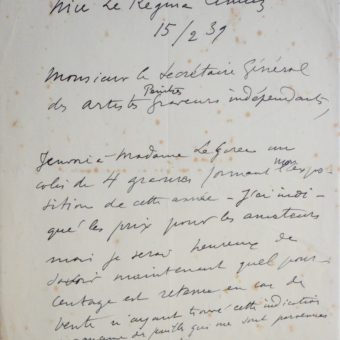 Nice Le Régina Cimiez
15/2 39
Monsieur le Secrétaire Général
Peintres
des artistes graveurs indépendants,
J'envoie à Madame Le Garrec un
colis de 4 gravures formant mon expo-
sition de cette année - J'ai indi-
qué les prix pour les amateurs
mais je serai heureux de
savoir maintenant quel pour-
centage est retenu en cas de
vente n'ayant trouvé cette indication
feuilles qui me sont parvenues